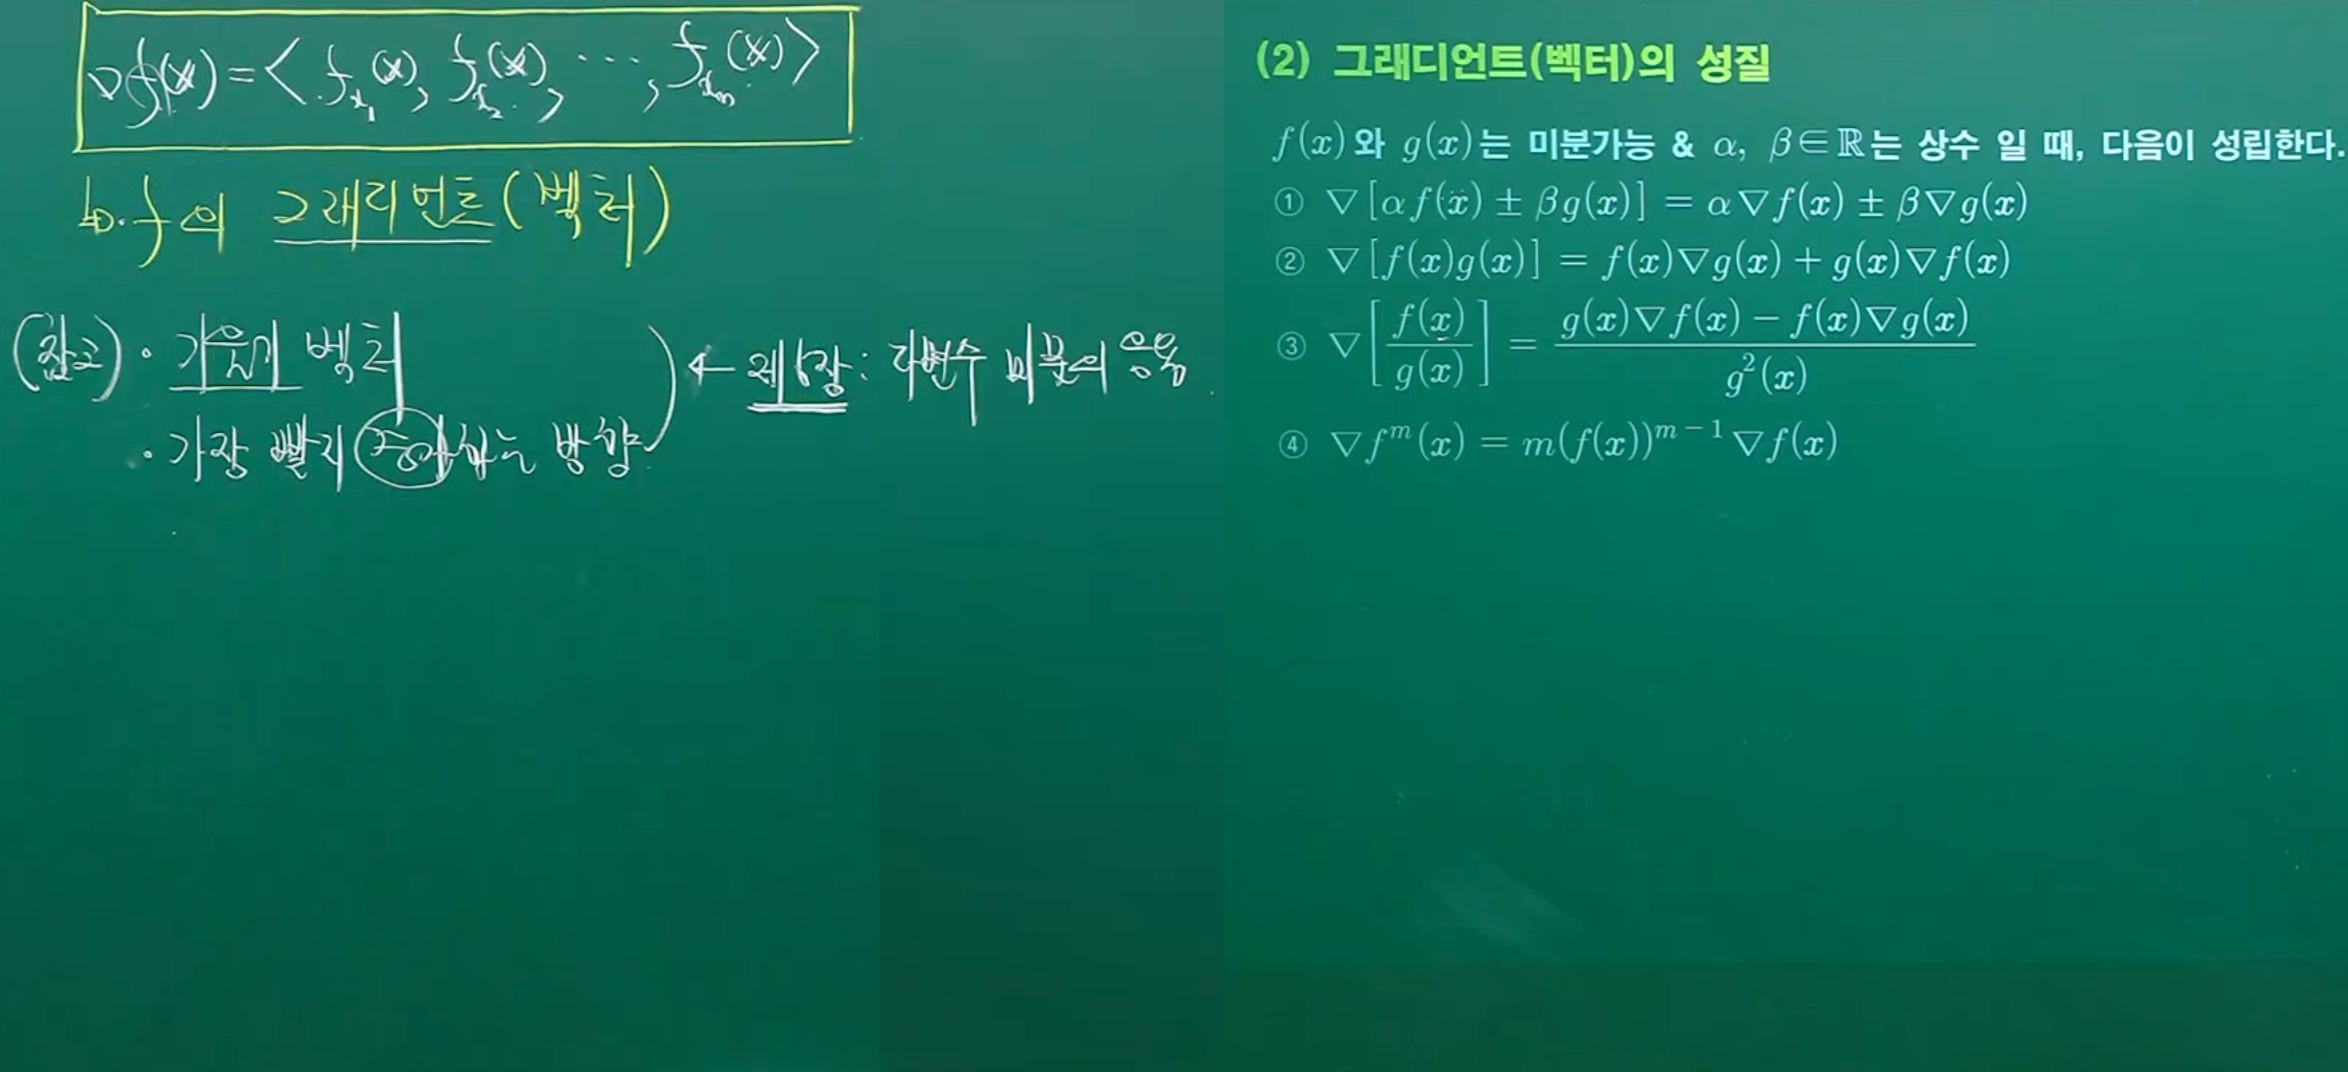 ∇f(x) = < f_x₁(x), f_x₂(x), ⋯, f_xₙ(x) >
f의 그래디언트(벡터)
(참고) · 기울기 벡터
· 가장 빨리 증가하는 방향
← 제6장 : 다변수 미분의 응용
(2) 그래디언트(벡터)의 성질
f(x)와 g(x)는 미분가능 & α, β∈ℝ는 상수 일 때, 다음이 성립한다.
① ∇[αf(x) ± βg(x)] = α∇f(x) ± β∇g(x)
② ∇[f(x)g(x)] = f(x)∇g(x) + g(x)∇f(x)
③ ∇[f(x)/g(x)] = (g(x)∇f(x) − f(x)∇g(x))/g²(x)
④ ∇fᵐ(x) = m(f(x))ᵐ⁻¹∇f(x)